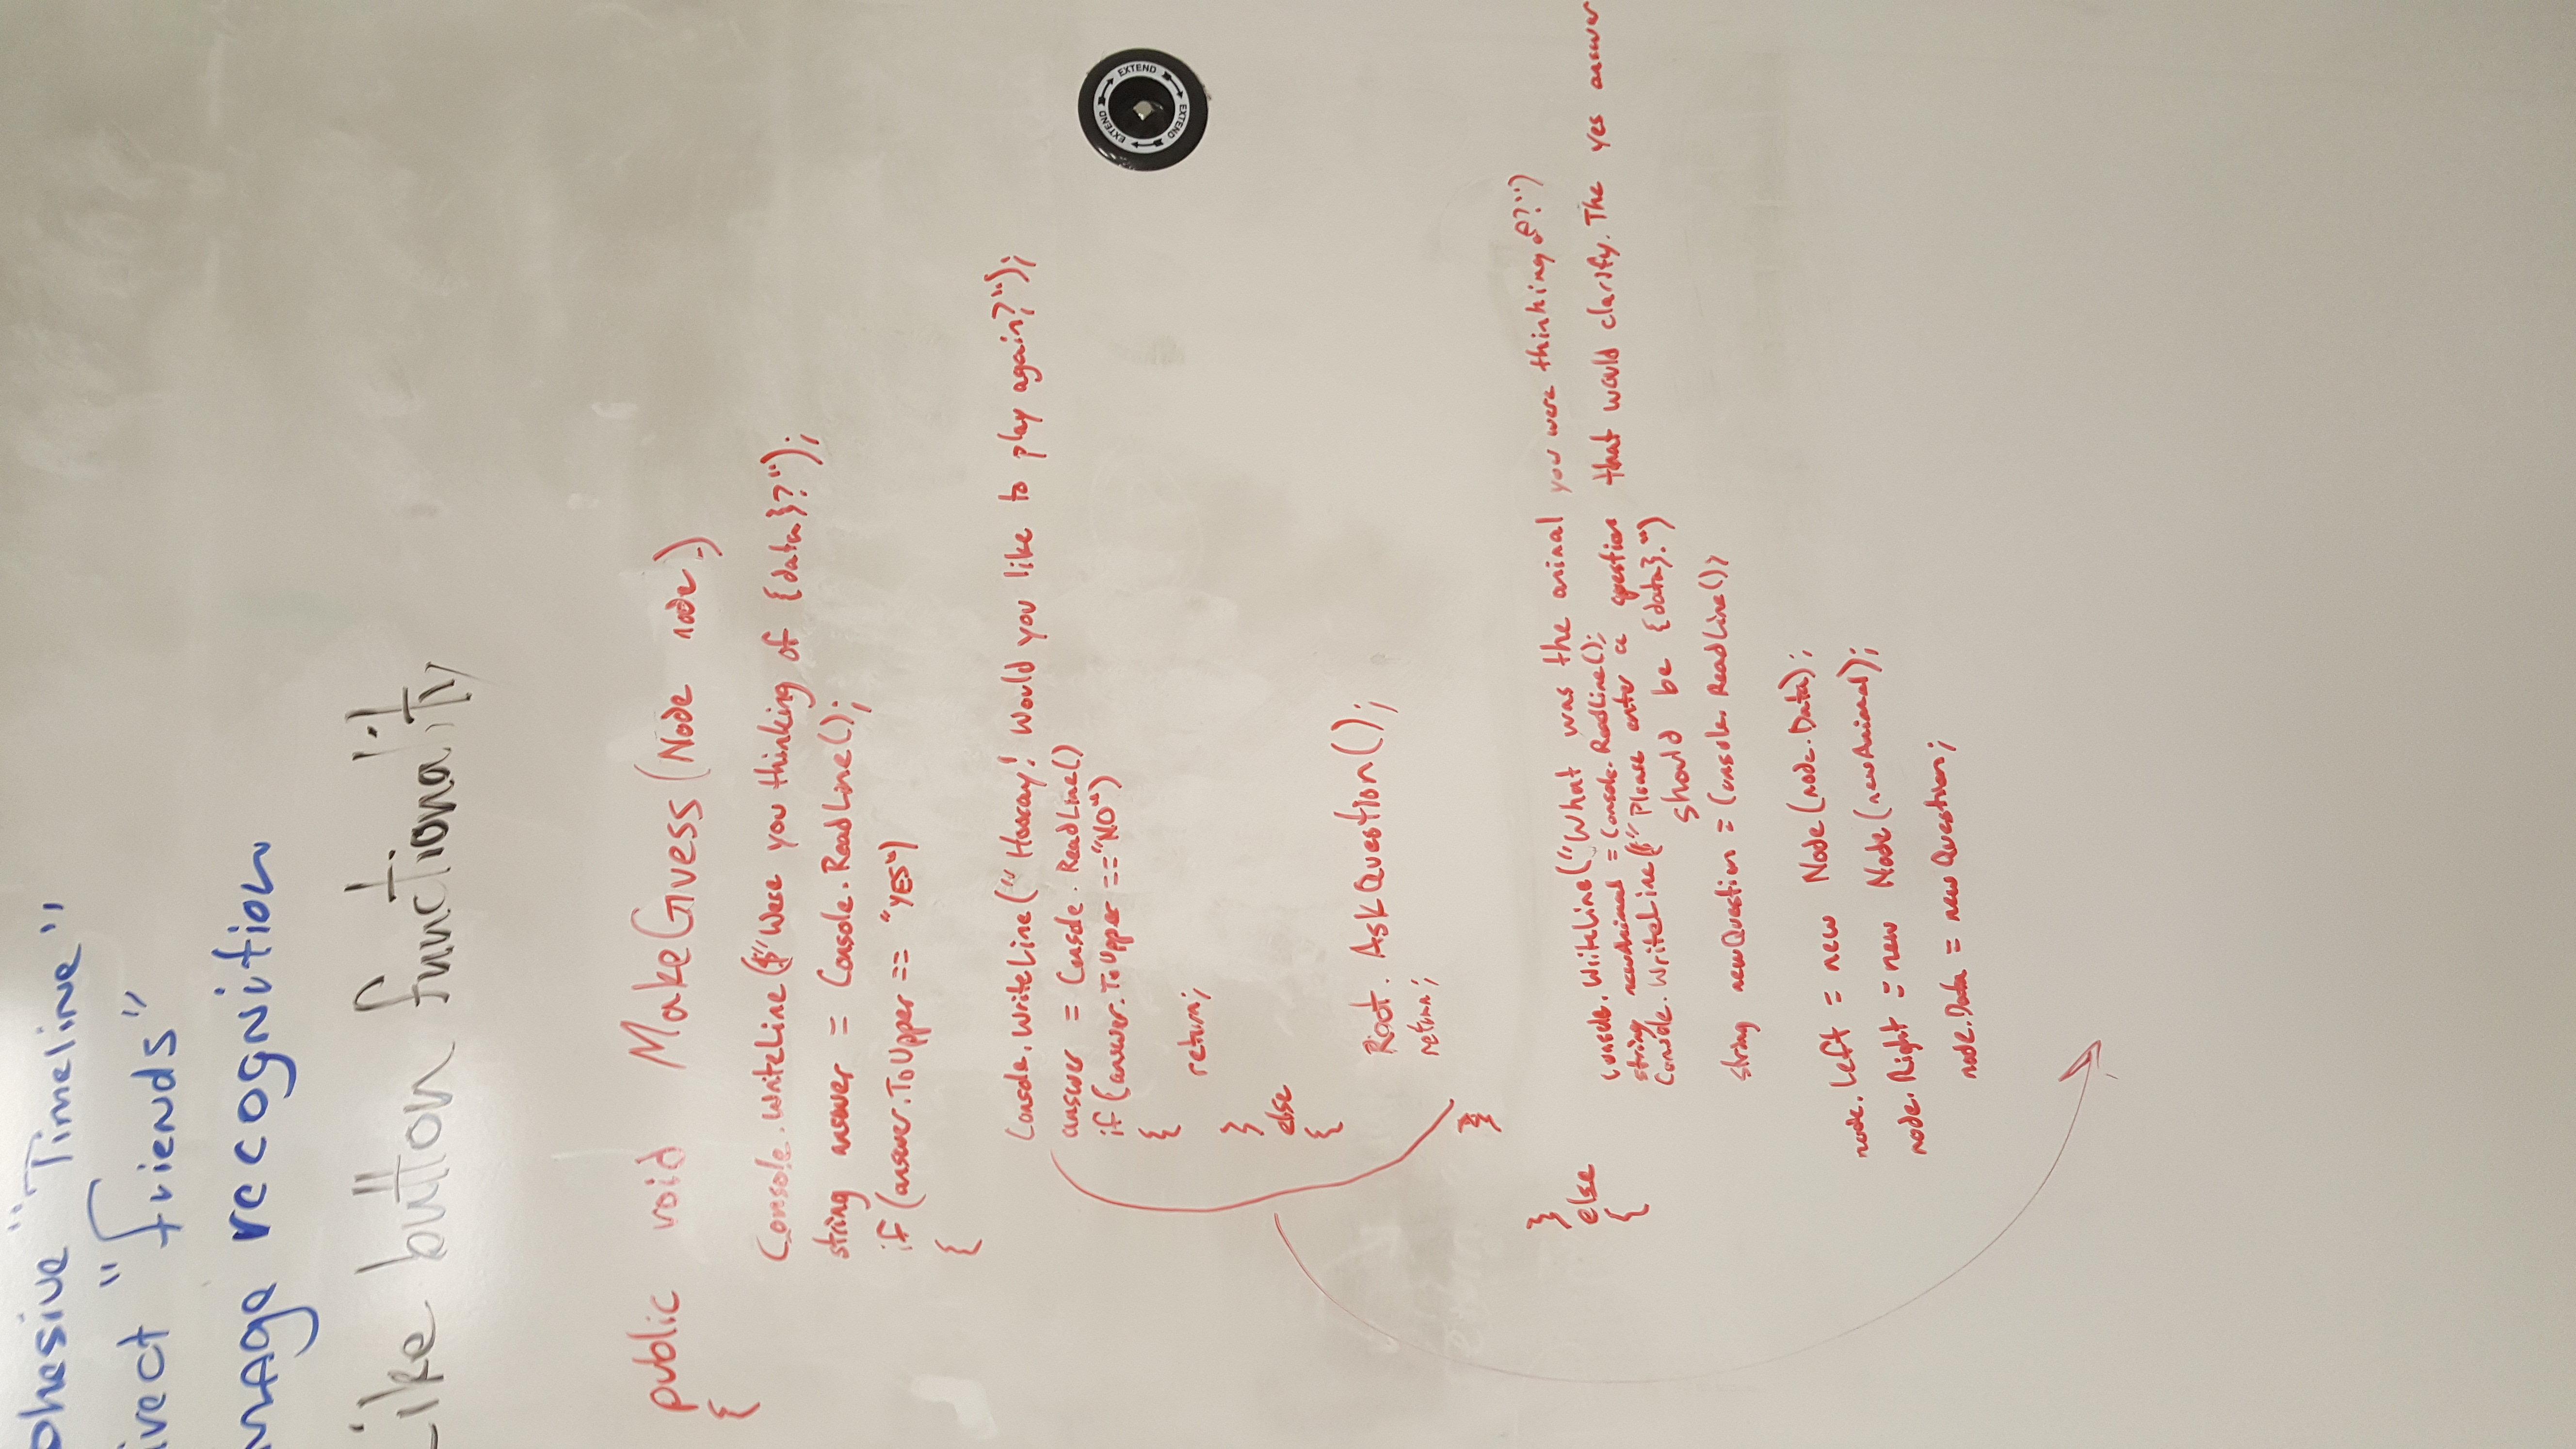 ohesive "Timeline"
irect "friends"
mage recognition
Like button functionality
public void MakeGuess(Node node)
{
Console.WriteLine($"Were you thinking of {data}?");
string answer = Console.ReadLine();
if (answer.ToUpper == "YES")
{
Console.WriteLine("Hooray! Would you like to play again?");
answer = Console.ReadLine()
if (answer.ToUpper == "NO")
{
return;
}
else
{
Root.AskQuestion();
return;
}
}
else
{
Console.WriteLine("What was the animal you were thinking of?")
string newAnimal = Console.ReadLine();
Console.WriteLine($"Please enter a question that would clarify. The yes answer
should be {data}.")
string newQuestion = Console.ReadLine();
node.Left = new Node(node.Data);
node.Right = new Node(newAnimal);
node.Data = newQuestion;
EXTEND EXTEND EXTEND EXTEND